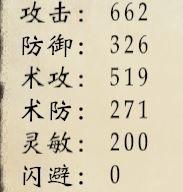 攻击: 662
防御: 326
术攻: 519
术防: 271
灵敏: 200
闪避: 0